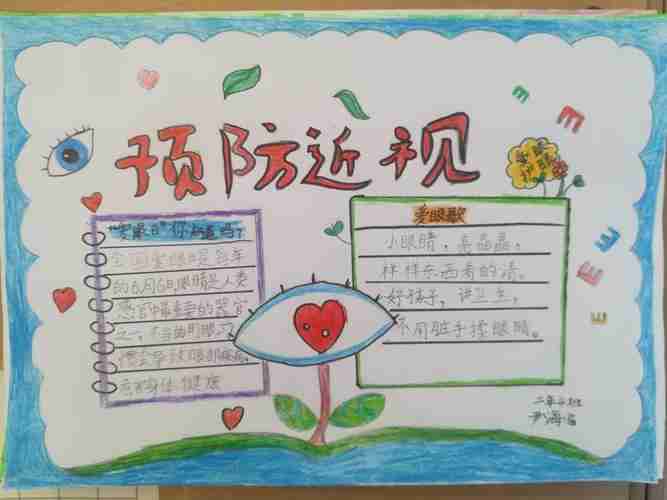 预防近视
"爱眼日"你知道吗?
全国爱眼日每年
的6月6日,眼睛是人类
感官中最重要的器官
之一,不当的用眼习
惯会导致眼部疾病,
危害身体健康
爱眼歌
小眼睛,亮晶晶,
样样东西看的清。
好孩子,讲卫生,
不用脏手揉眼睛。
E
E
E
E
E
二年
班
尹海